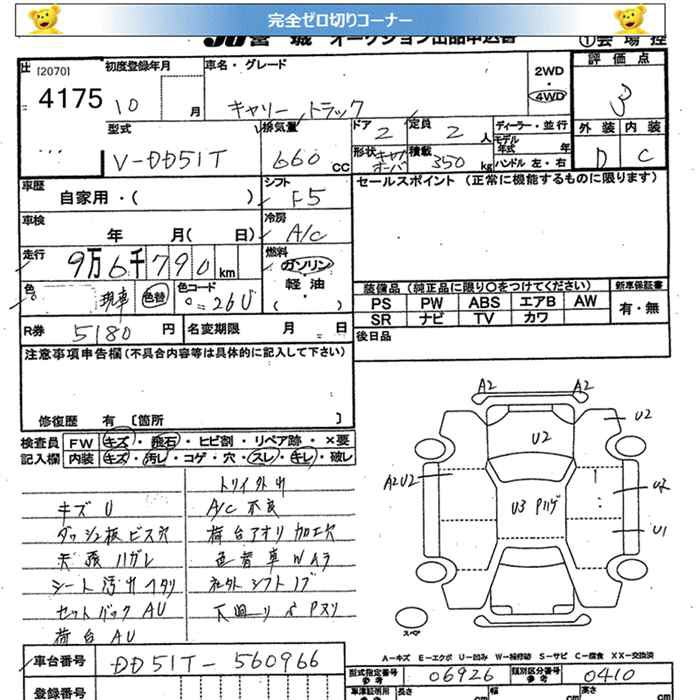 完全ゼロ切りコーナー
JU宮城 オークション出品申込書 ①会場控
出 [2070] 初度登録年月 車名・グレード 2WD・4WD 評価点
4175 10 月 キャリー トラック 3
型式 排気量 ドア 2 定員 2 人 ディーラー・並行 外装 内装
V-DD51T 660 CC 形状 キャブオーバ 積載 350 kg モデル年式 年 ハンドル 左・右 D C
車歴 自家用・( ) シフト F5 セールスポイント (正常に機能するものに限ります)
車検 年 月( 日) 冷房 A/C
走行 9万6千790km 燃料 ガソリン・軽油・( )
色 現車 色替 色コード 26U
装備品 (純正品に限り○をつけてください) 新車保証書
PS PW ABS エアB AW 有・無
SR ナビ TV カワ
R券 5180 円 名変期限 月 日 後日品
注意事項申告欄 (不具合内容等は具体的に記入して下さい)
修復歴 有 [箇所 ]
検査員 FW キズ・飛石・ヒビ割・リペア跡・×要
記入欄 内装 キズ・汚レ・コゲ・穴・スレ・キレ・破レ
キズ U
ダッシュ板ビス穴
天張ハガレ
シート汚レ ヘタリ
セットバック AU
荷台 AU
A/C 不良
荷台アオリ加工穴
色替車 Wムラ
社外シフトノブ
下回リ
A2 A2
U2
U2
A2U2
U3
U2
U1
スペア
A-キズ E-エクボ U-凹み W-補修跡 S-サビ C-腐食 XX-交換済
車台番号 DD51T-560966
型式指定番号 参考 06926 類別区分番号 参考 0410
登録番号 長さ cm 幅 cm 高さ cm